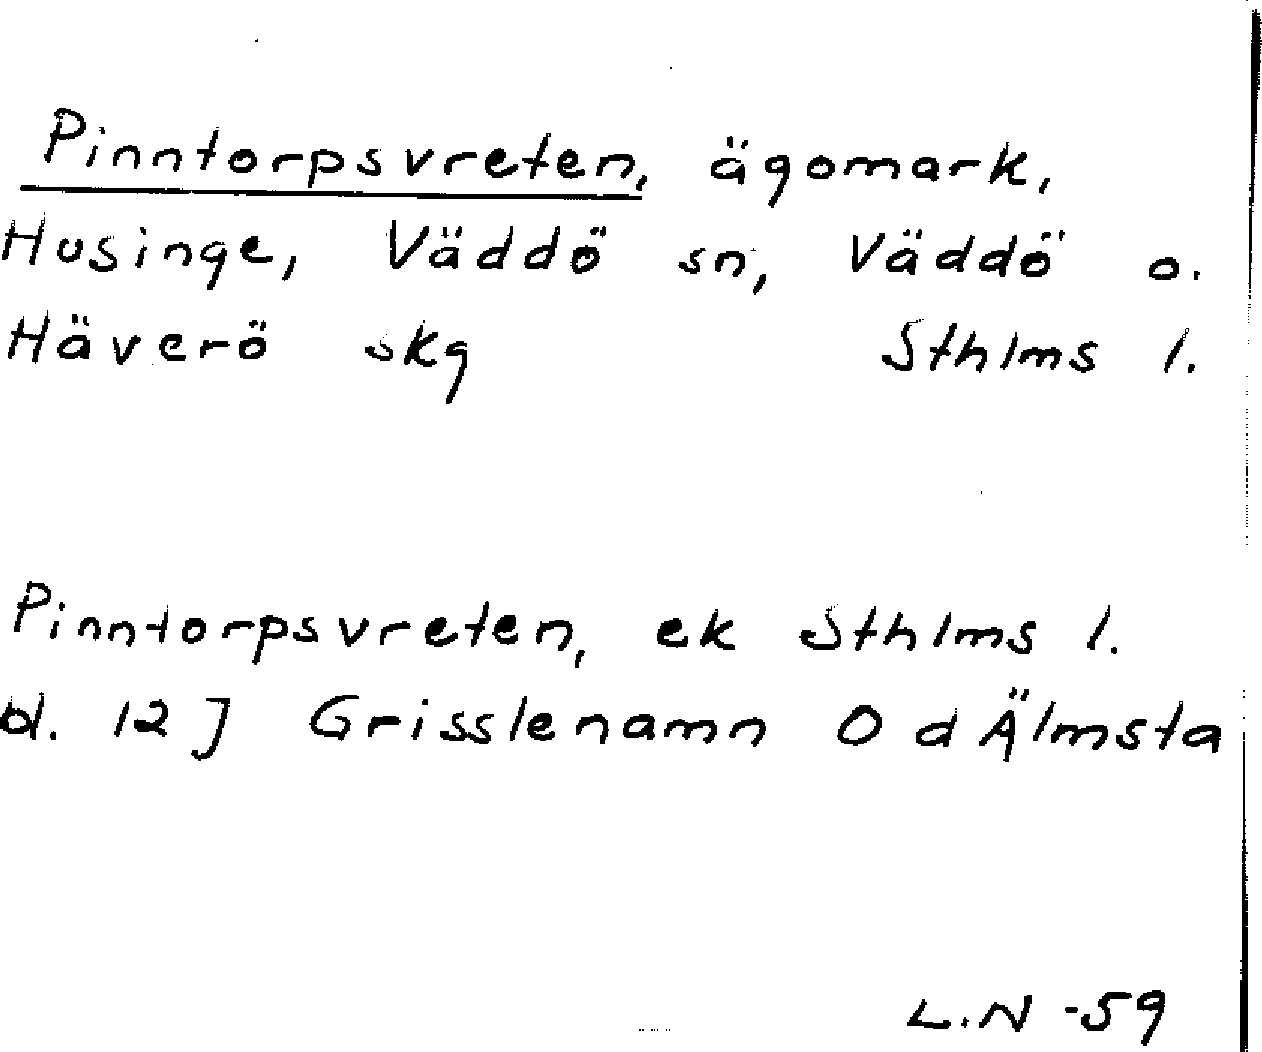 Pinntorpsvreten, ägomark,
Husinge, Väddö sn, Väddö o.
Häverö skg Sthlms l.
Pinntorpsvreten, ek Sthlms l.
bl. 12 J Grisslehamn O d Älmsta
L.N -59